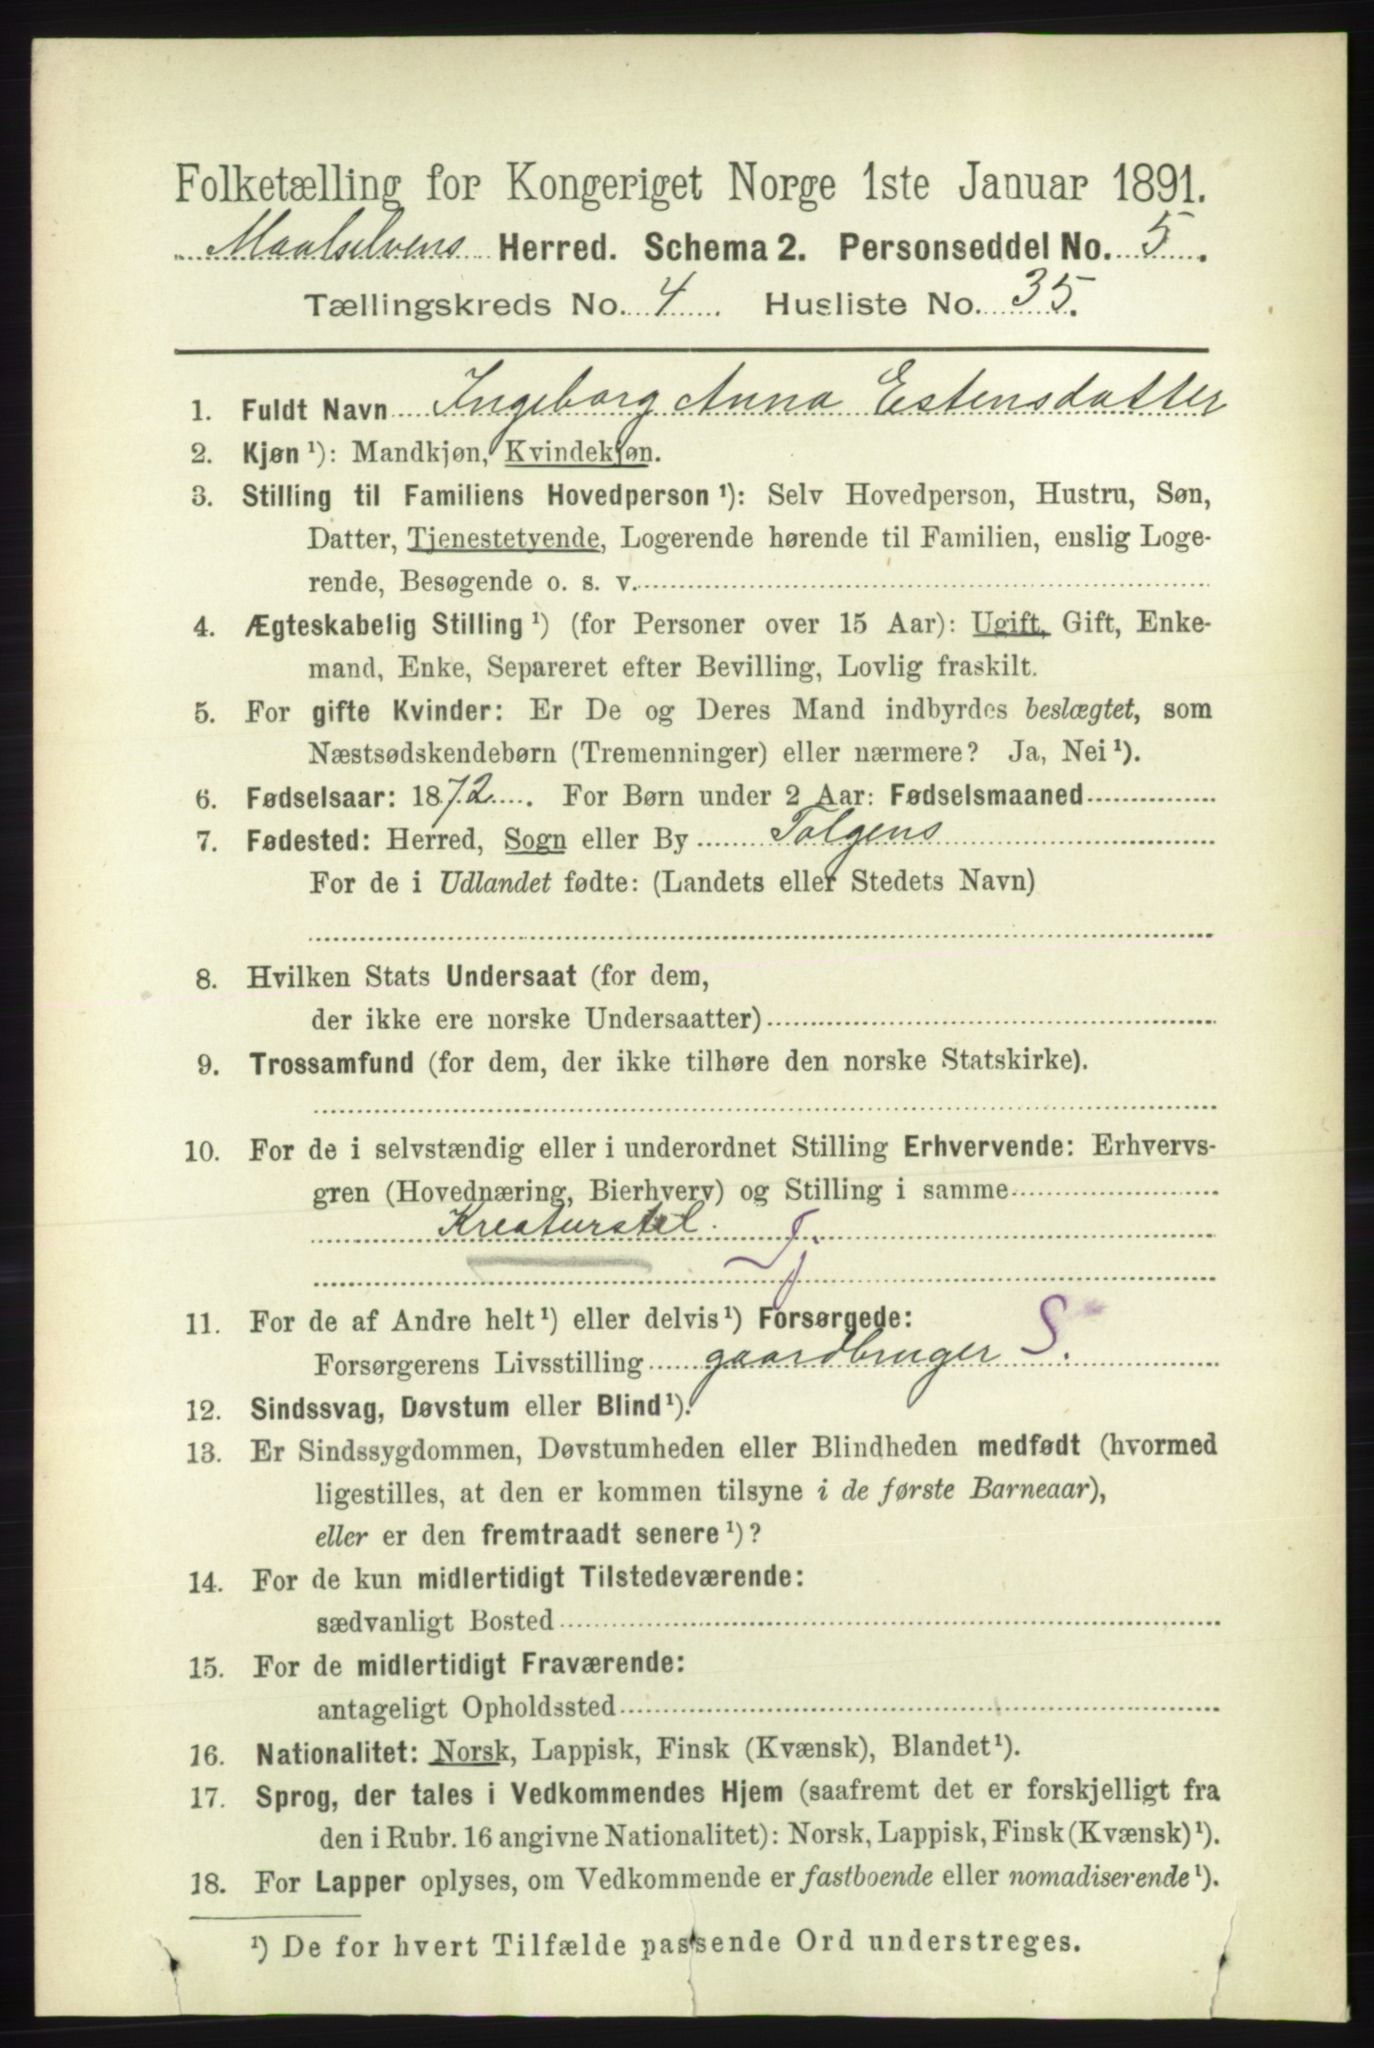 Folketælling for Kongeriget Norge 1ste Januar 1891.
Maalselvens Herred. Schema 2. Personseddel No. 5.
Tællingskreds No. 4 Husliste No. 35.
1. Fuldt Navn Ingeborg Anna Estensdatter
2. Kjøn ¹): Mandkjøn, Kvindekjøn.
3. Stilling til Familiens Hovedperson ¹): Selv Hovedperson, Hustru, Søn,
Datter, Tjenestetyende, Logerende hørende til Familien, enslig Loge-
rende, Besøgende o. s. v.
4. Ægteskabelig Stilling ¹) (for Personer over 15 Aar): Ugift, Gift, Enke-
mand, Enke, Separeret efter Bevilling, Lovlig fraskilt.
5. For gifte Kvinder: Er De og Deres Mand indbyrdes beslægtet, som
Næstsødskendebørn (Tremenninger) eller nærmere? Ja, Nei ¹).
6. Fødselsaar: 1872. For Børn under 2 Aar: Fødselsmaaned
7. Fødested: Herred, Sogn eller By Tolgens
For de i Udlandet fødte: (Landets eller Stedets Navn)
8. Hvilken Stats Undersaat (for dem,
der ikke ere norske Undersaatter)
9. Trossamfund (for dem, der ikke tilhøre den norske Statskirke).
10. For de i selvstændig eller i underordnet Stilling Erhvervende: Erhvervs-
gren (Hovednæring, Bierhverv) og Stilling i samme
Kreaturstel. Tj
11. For de af Andre helt ¹) eller delvis ¹) Forsørgede:
Forsørgerens Livsstilling gaardbruger S.
12. Sindssvag, Døvstum eller Blind ¹).
13. Er Sindssygdommen, Døvstumheden eller Blindheden medfødt (hvormed
ligestilles, at den er kommen tilsyne i de første Barneaar),
eller er den fremtraadt senere ¹)?
14. For de kun midlertidigt Tilstedeværende:
sædvanligt Bosted
15. For de midlertidigt Fraværende:
antageligt Opholdssted
16. Nationalitet: Norsk, Lappisk, Finsk (Kvænsk), Blandet ¹).
17. Sprog, der tales i Vedkommendes Hjem (saafremt det er forskjelligt fra
den i Rubr. 16 angivne Nationalitet): Norsk, Lappisk, Finsk (Kvænsk) ¹).
18. For Lapper oplyses, om Vedkommende er fastboende eller nomadiserende ¹).
¹) De for hvert Tilfælde passende Ord understreges.